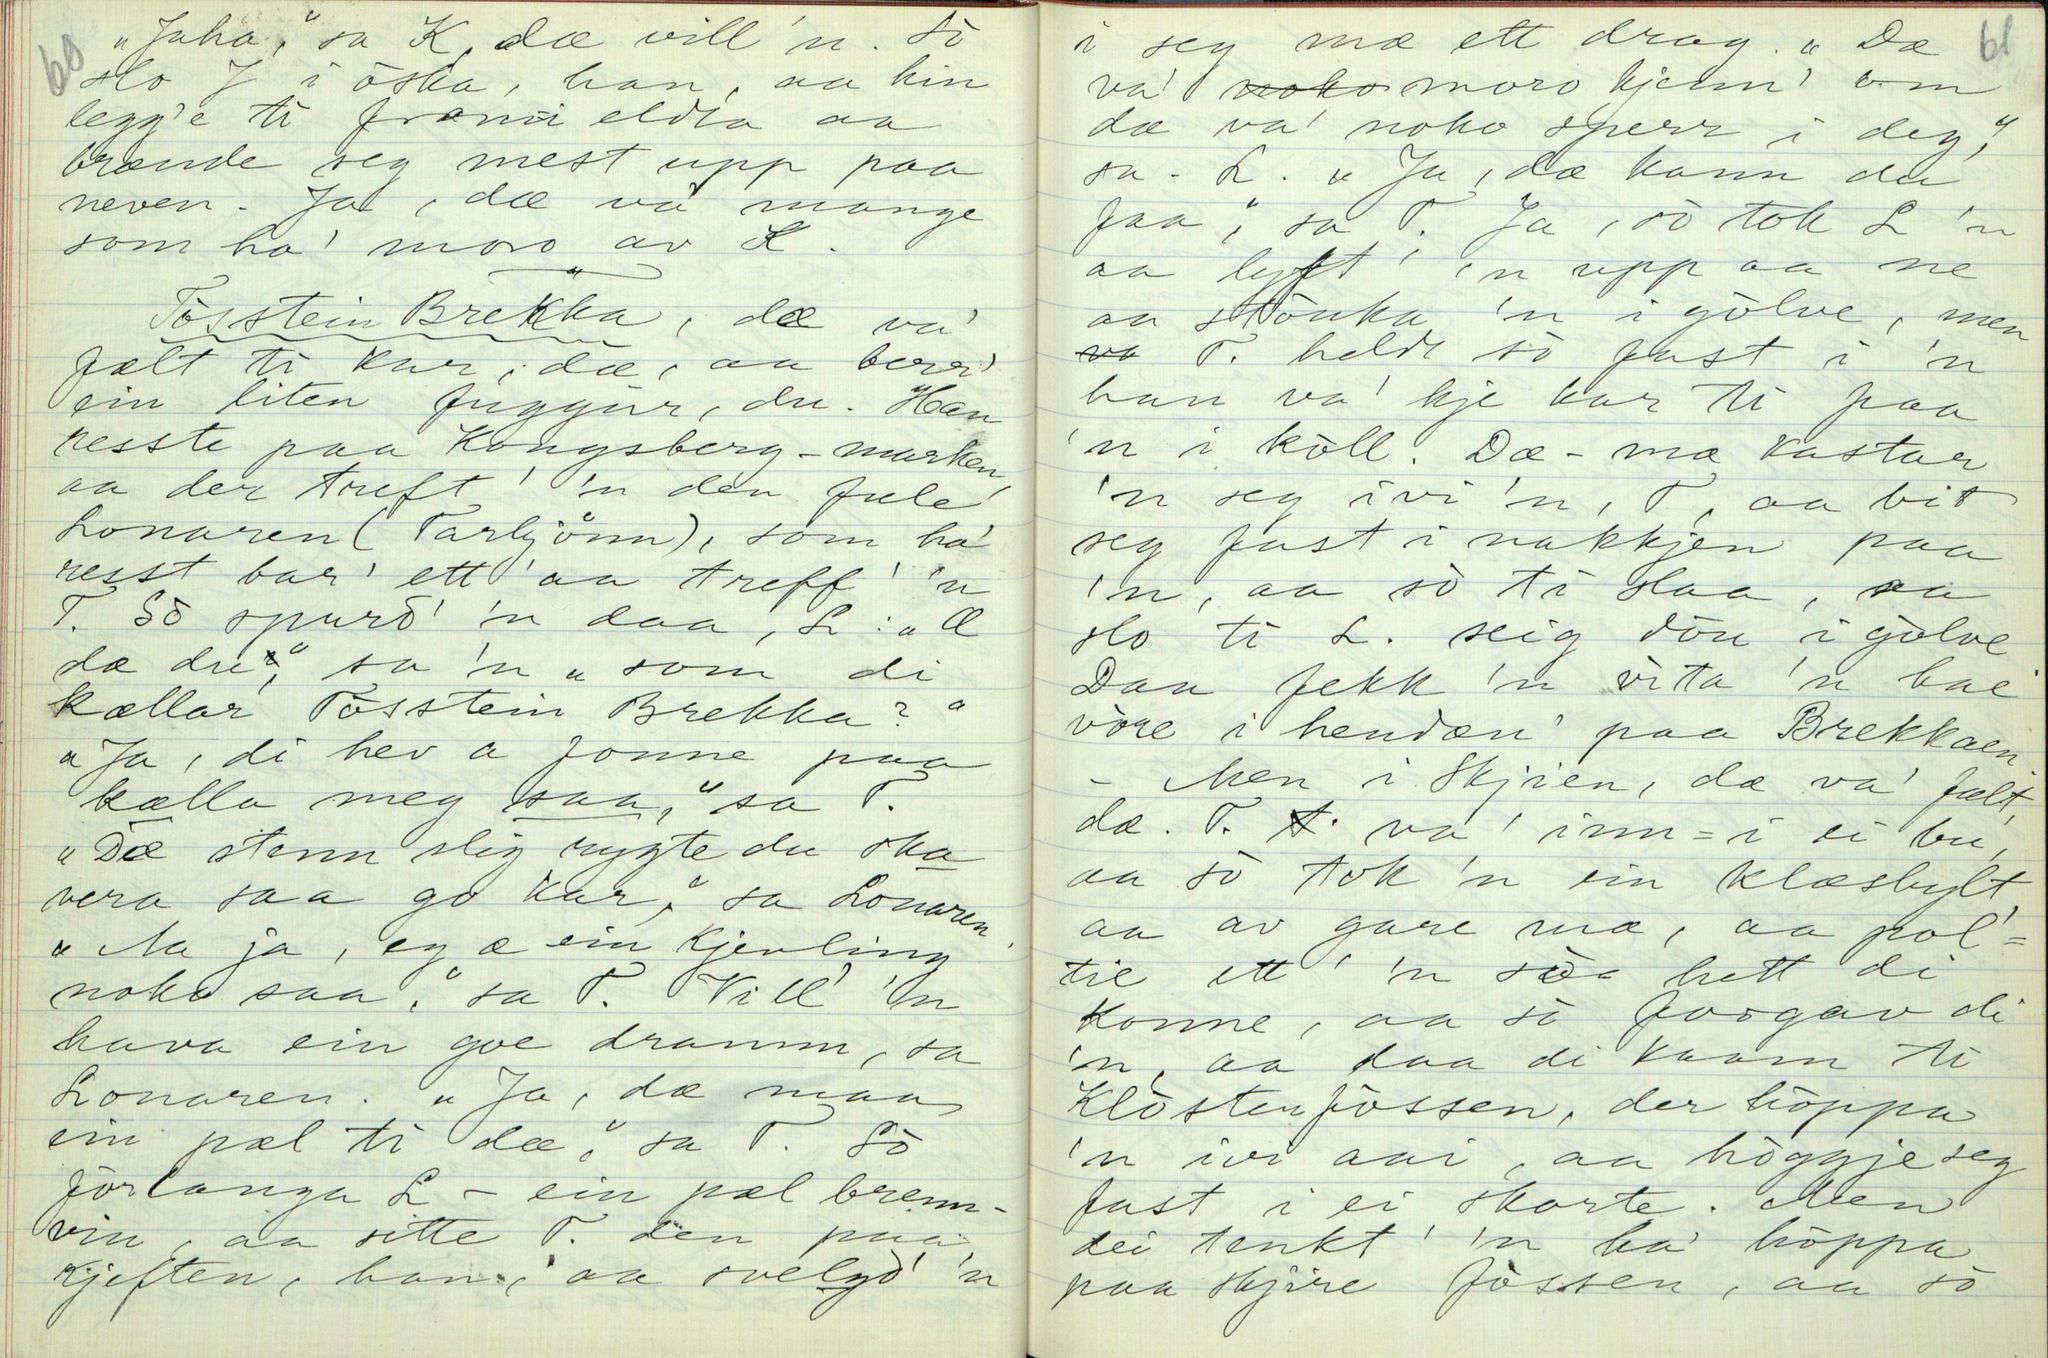 60
„Jaha," sa K, dæ vill 'n. Sò
slo J i òska, han, aa hin
legg'e ti framī eldta aa
brænde seg mest upp paa
neven. Ja, dæ va mange
som ha' moro av K.
Tòsstein Brekka, dæ va'
fælt ti kar, dæ, aa berr'
ein liten fuggur, du. Han
resste paa Kongsberg-marken,
aa der treft' 'n den fule
Lonaren (Tarhjònn), som ha'
resst bar' ett aa treff' 'n
T. Sò spurd' 'n daa, L: „Æ
dæ du," sa 'n „som di
kællar Tòsstein Brekka?"
„Ja, di hev a fonne paa
kælla meg saa," sa T.
„Dæ stenn slig rygte du ska
vera saa go kar," sa Lonaren.
„Aa ja, eg æ ein kjevling
noko saa," sa T. Vill 'n
hava ein goe dramm, sa
Lonaren. „Ja, dæ maa
ein pæl ti dæ," sa T. Sò
førlanga L – ein pæl brenn-
vin, aa sitte T. den paa
kjeften, han, aa svelgd' 'n
61
i seg mæ ett drag. „Dæ
va' noko moro kjenn' om
dæ va' noko sperr i deg,"
sa - L. „Ja, dæ kann du
faa," sa T. Ja, sò tok L 'n
aa lyft' 'n upp aa ne
aa stònka 'n i gòlve, men
va T. heldt sò fast i 'n
han va' kje kar ti faa
'n i kòll. Dæ-mæ kastar
'n seg ivi 'n, T, aa bit
seg fast i nakkjen paa
'n, aa sò ti slaa, aa
slo ti L. seig dòn i gòlve
Daa fekk 'n vita 'n hae
vòre i hendæn' paa Brekkaen
– Men i Skjien, dæ va' fælt,
dæ. T. t. va' inn=i ei bu,
aa sò tok 'n ein klæsbylt
aa av gare mæ, aa pol'=
tie ett 'n sòa hett di
konne, aa sò forgav di
'n, aa daa di kaam ti
Klòsterfòssen, der hòppa
'n ivi aai, aa hòggje seg
fast i ei skorte. Men
dei tenkt' 'n ha' hòppa
paa skjire fòssen, aa sò